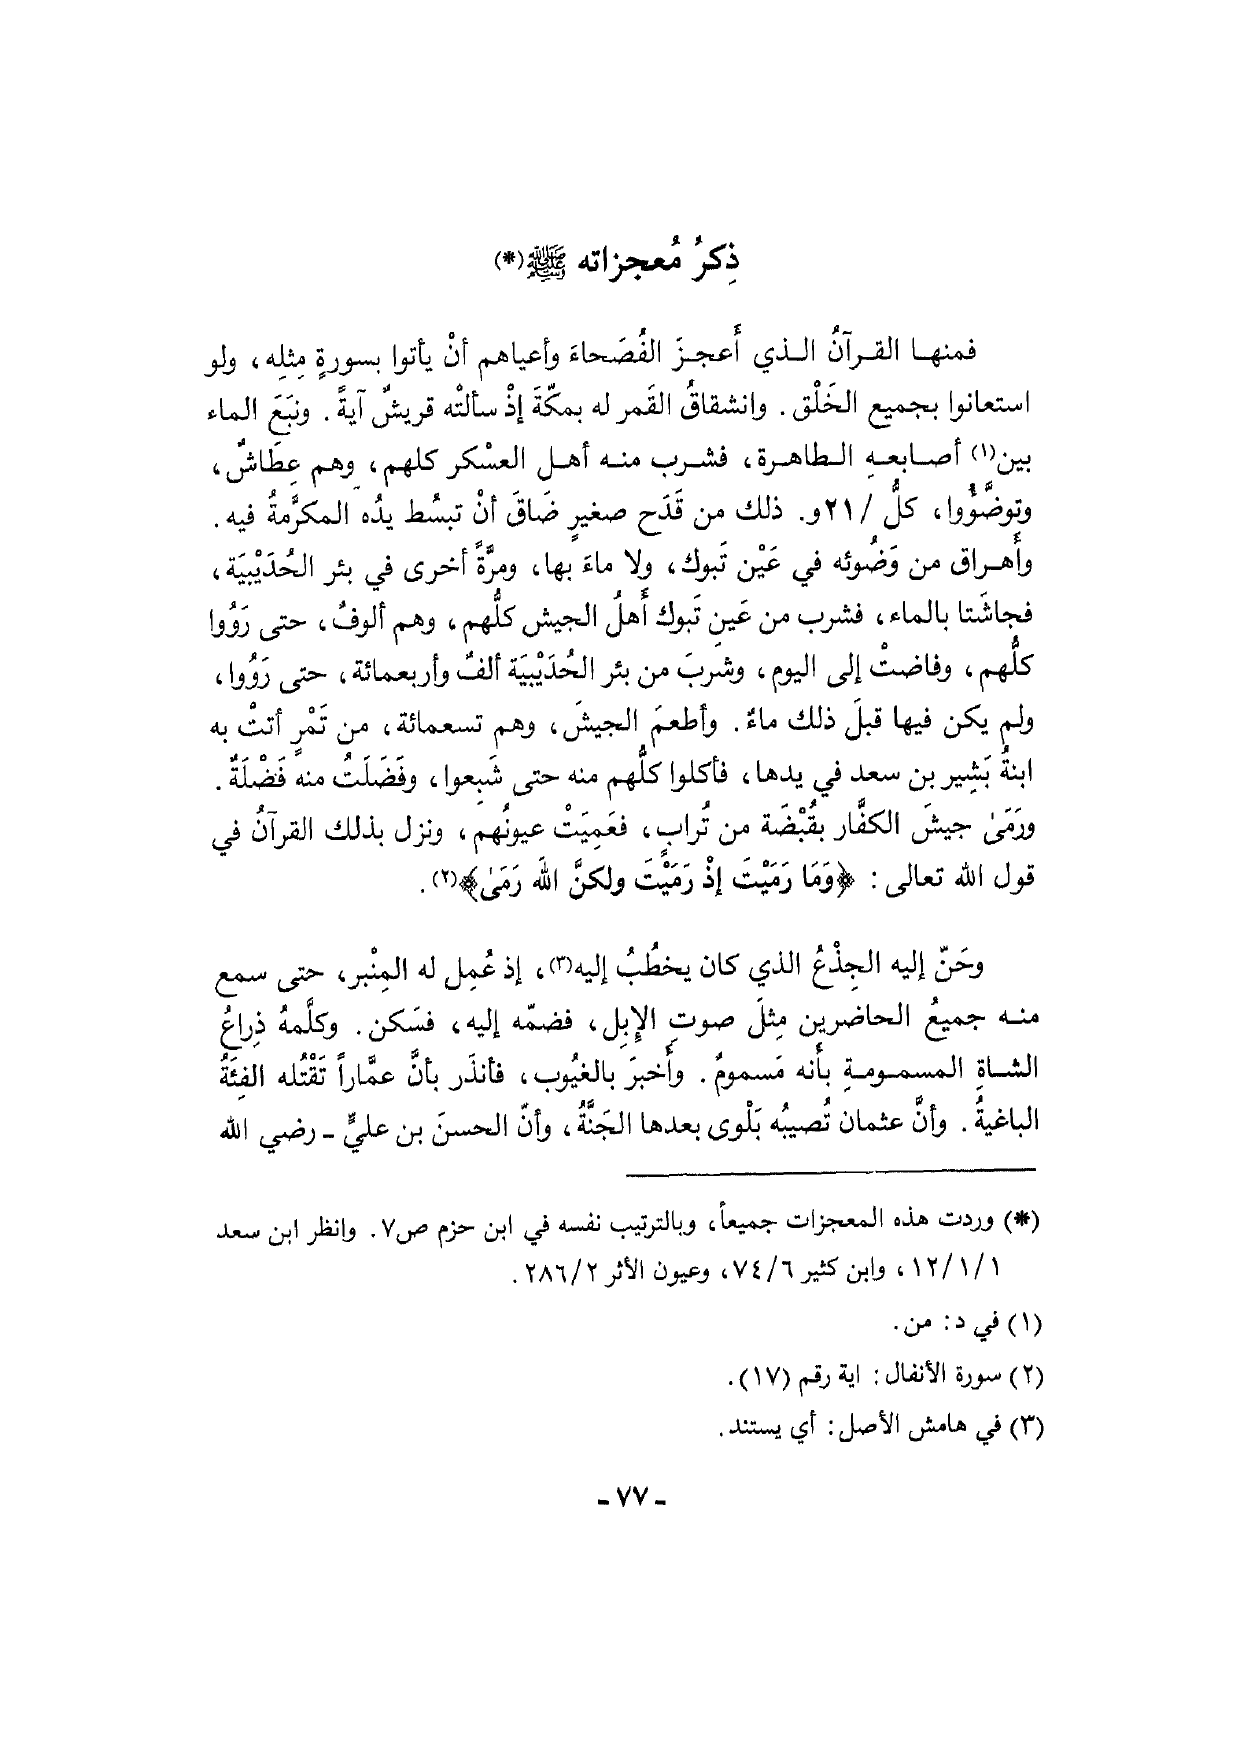 ذِكرُ مُعجزاته ﷺ(*)
فمنها القرآنُ الذي أَعجزَ الفُصَحاءَ وأعياهم أنْ يأتوا بسورةٍ مِثلِه، ولو
استعانوا بجميع الخَلْق. وانشقاقُ القَمر له بمكّةَ إذْ سألتْه قريشٌ آيةً. ونبَعَ الماء
بين(١) أصابعهِ الطاهرة، فشرب منه أهل العسْكر كلهم، وهم عِطَاشٌ،
وتوضَّؤُوا، كلُّ /٢١و. ذلك من قَدَح صغيرٍ ضَاقَ أنْ تبسُط يدُه المكرَّمةُ فيه.
وأَهراق من وَضُوئه في عَيْن تَبوك، ولا ماءَ بها، ومرَّةً أخرى في بئر الحُدَيْبيَة،
فجاشَتا بالماء، فشرب من عَينِ تَبوك أَهلُ الجيش كلُّهم، وهم ألوفٌ، حتى رَوُوا
كلُّهم، وفاضتْ إلى اليوم، وشربَ من بئر الحُدَيْبيَة ألفٌ وأربعمائة، حتى رَوُوا،
ولم يكن فيها قبلَ ذلك ماءٌ. وأطعمَ الجيشَ، وهم تسعمائة، من تَمْرٍ أتتْ به
ابنةُ بَشِير بن سعد في يدها، فأكلوا كلُّهم منه حتى شَبِعوا، وفَضَلَتُ منه فَضْلَةٌ.
ورَمَىٰ جيشَ الكفَّار بقُبْضَة من تُرابٍ، فعَمِيَتْ عيونُهم، ونزل بذلك القرآنُ في
قول الله تعالى: ﴿وَمَا رَمَيْتَ إذْ رَمَيْتَ ولكنَّ اللهَ رَمَىٰ﴾(٢).
وحَنّ إليه الجِذْعُ الذي كان يخطُبُ إليه(٣)، إذ عُمِل له المِنْبر، حتى سمع
منه جميعُ الحاضرين مِثلَ صوتِ الإِبِل، فضمّه إليه، فسَكن. وكلَّمهُ ذِراعُ
الشاةِ المسمومةِ بأَنه مَسمومٌ. وأَخبرَ بالغيُوب، فأنذَر بأنَّ عمَّاراً تَقْتُله الفِئَةُ
الباغيةُ. وأنَّ عثمان تُصيبُه بَلْوى بعدها الجَنَّةُ، وأنّ الحسنَ بن عليٍّ - رضي الله
(*) وردت هذه المعجزات جميعاً، وبالترتيب نفسه في ابن حزم ص٧. وانظر ابن سعد
١٢/١/١، وابن كثير ٧٤/٦، وعيون الأثر ٢٨٦/٢.
(١) في د: من.
(٢) سورة الأنفال: اية رقم (١٧).
(٣) في هامش الأصل: أي يستند.
- ٧٧ -